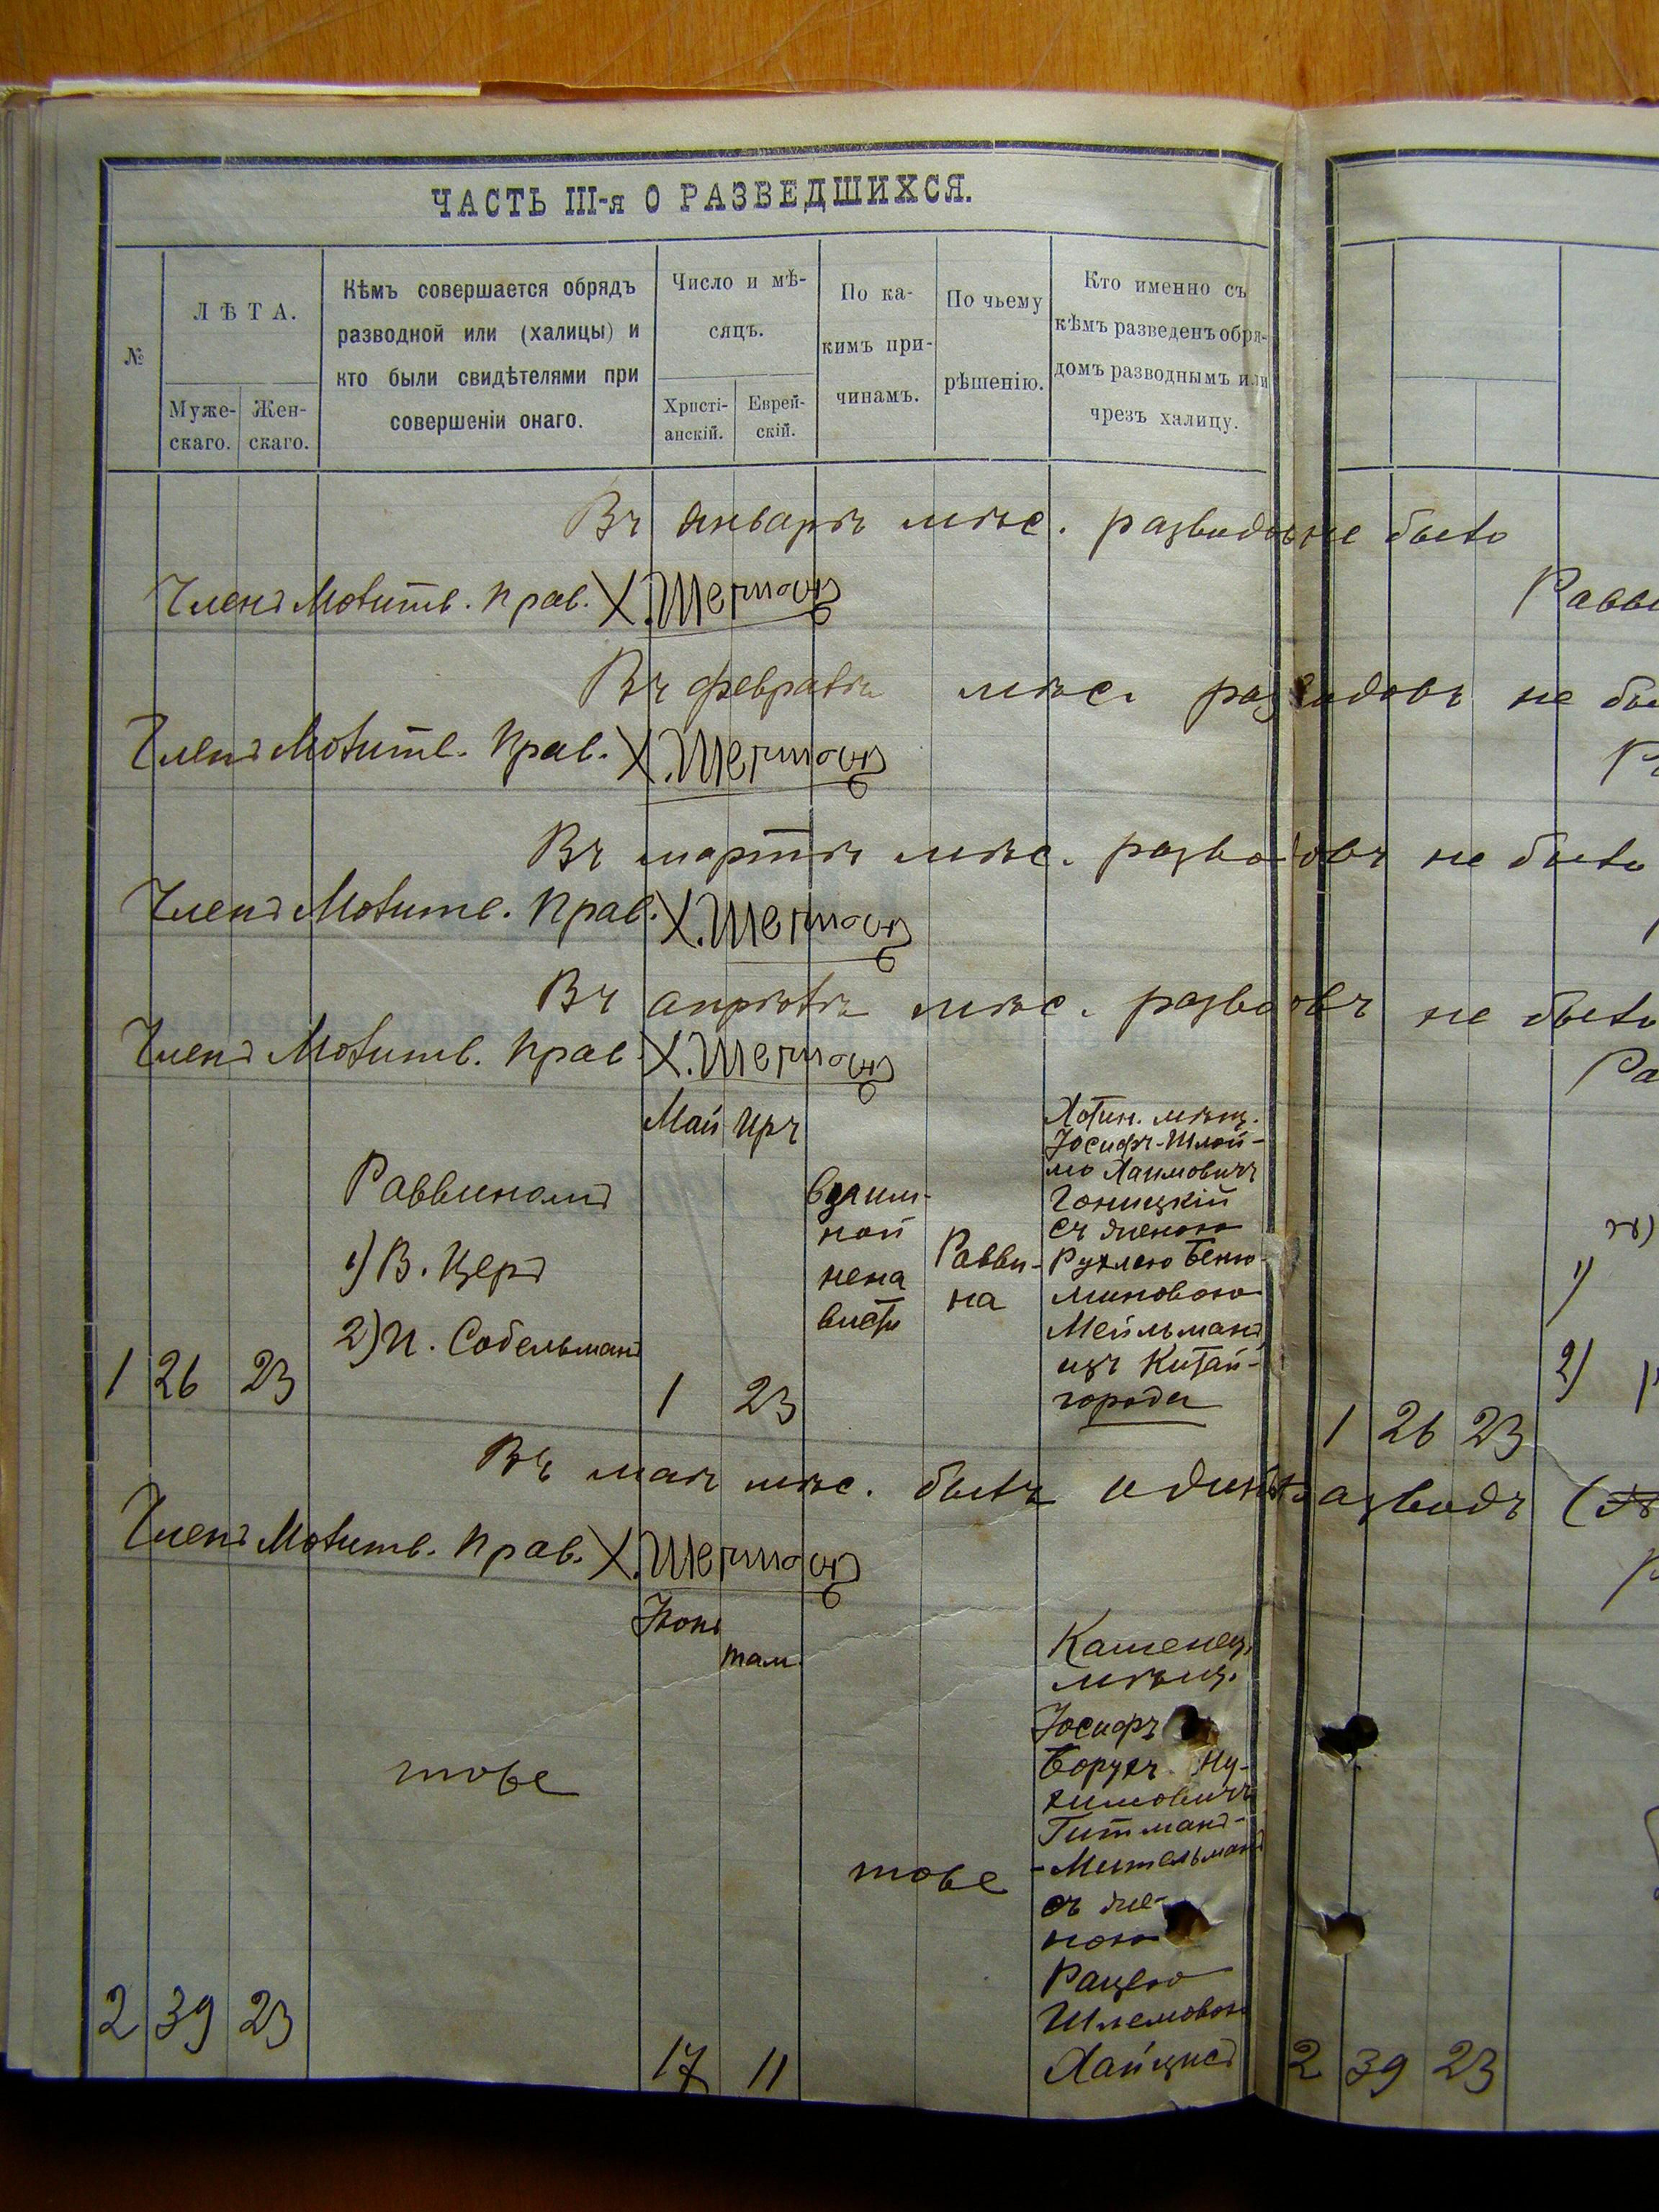 ЧАСТЬ III-я О РАЗВЕДШИХСЯ.
№
ЛѢТА.
Муже-
скаго.
Жен-
скаго.
Кѣмъ совершается обрядъ
разводной или (халицы) и
кто были свидѣтелями при
совершеніи онаго.
Число и мѣ-
сяцъ.
Христі-
анскій.
Еврей-
скій.
По ка-
кимъ при-
чинамъ.
По чьему
рѣшенію.
Кто именно съ
кѣмъ разведенъ обря-
домъ разводнымъ или
чрезъ халицу.
Въ январѣ мѣс. разводовъ не было
Членъ Молитв. Прав. Х. Шегмосъ Равви
Въ февралѣ мѣс. разводовъ не бы
Членъ Молитв. Прав. Х.
Въ мартѣ мѣс. разводовъ не было
Членъ Молитв. Прав. Х.
Въ апрѣлѣ мѣс. разводовъ не было
Членъ Молитв. Прав. Х. Ра
Май Иръ
Раввиномъ
1) В. Церъ
2) И. Собельманъ
1 26 23
1 23
взаим-
ной
нена
висти
Равви-
на
Хотин. мѣщ.
Іосифъ-Шлой-
мо Хаимовичъ
Гоницкій
съ женою
Рухлею Беню-
миновою
Мейльманъ
изъ Китай-
города
1)
2)
1 26 23
Въ маѣ мѣс. былъ одинъ разводъ
Членъ Молитв. Прав. Х.
Іюнь
там.
тоже
тоже
2 39 23
17 11
Каменец.
мѣщ.
Іосифъ
Борухъ Ну-
химовичъ
Гитманъ-
-Мительманъ
съ же-
ною
Рацею
Шлемовою
Хайцисъ
2 39 23